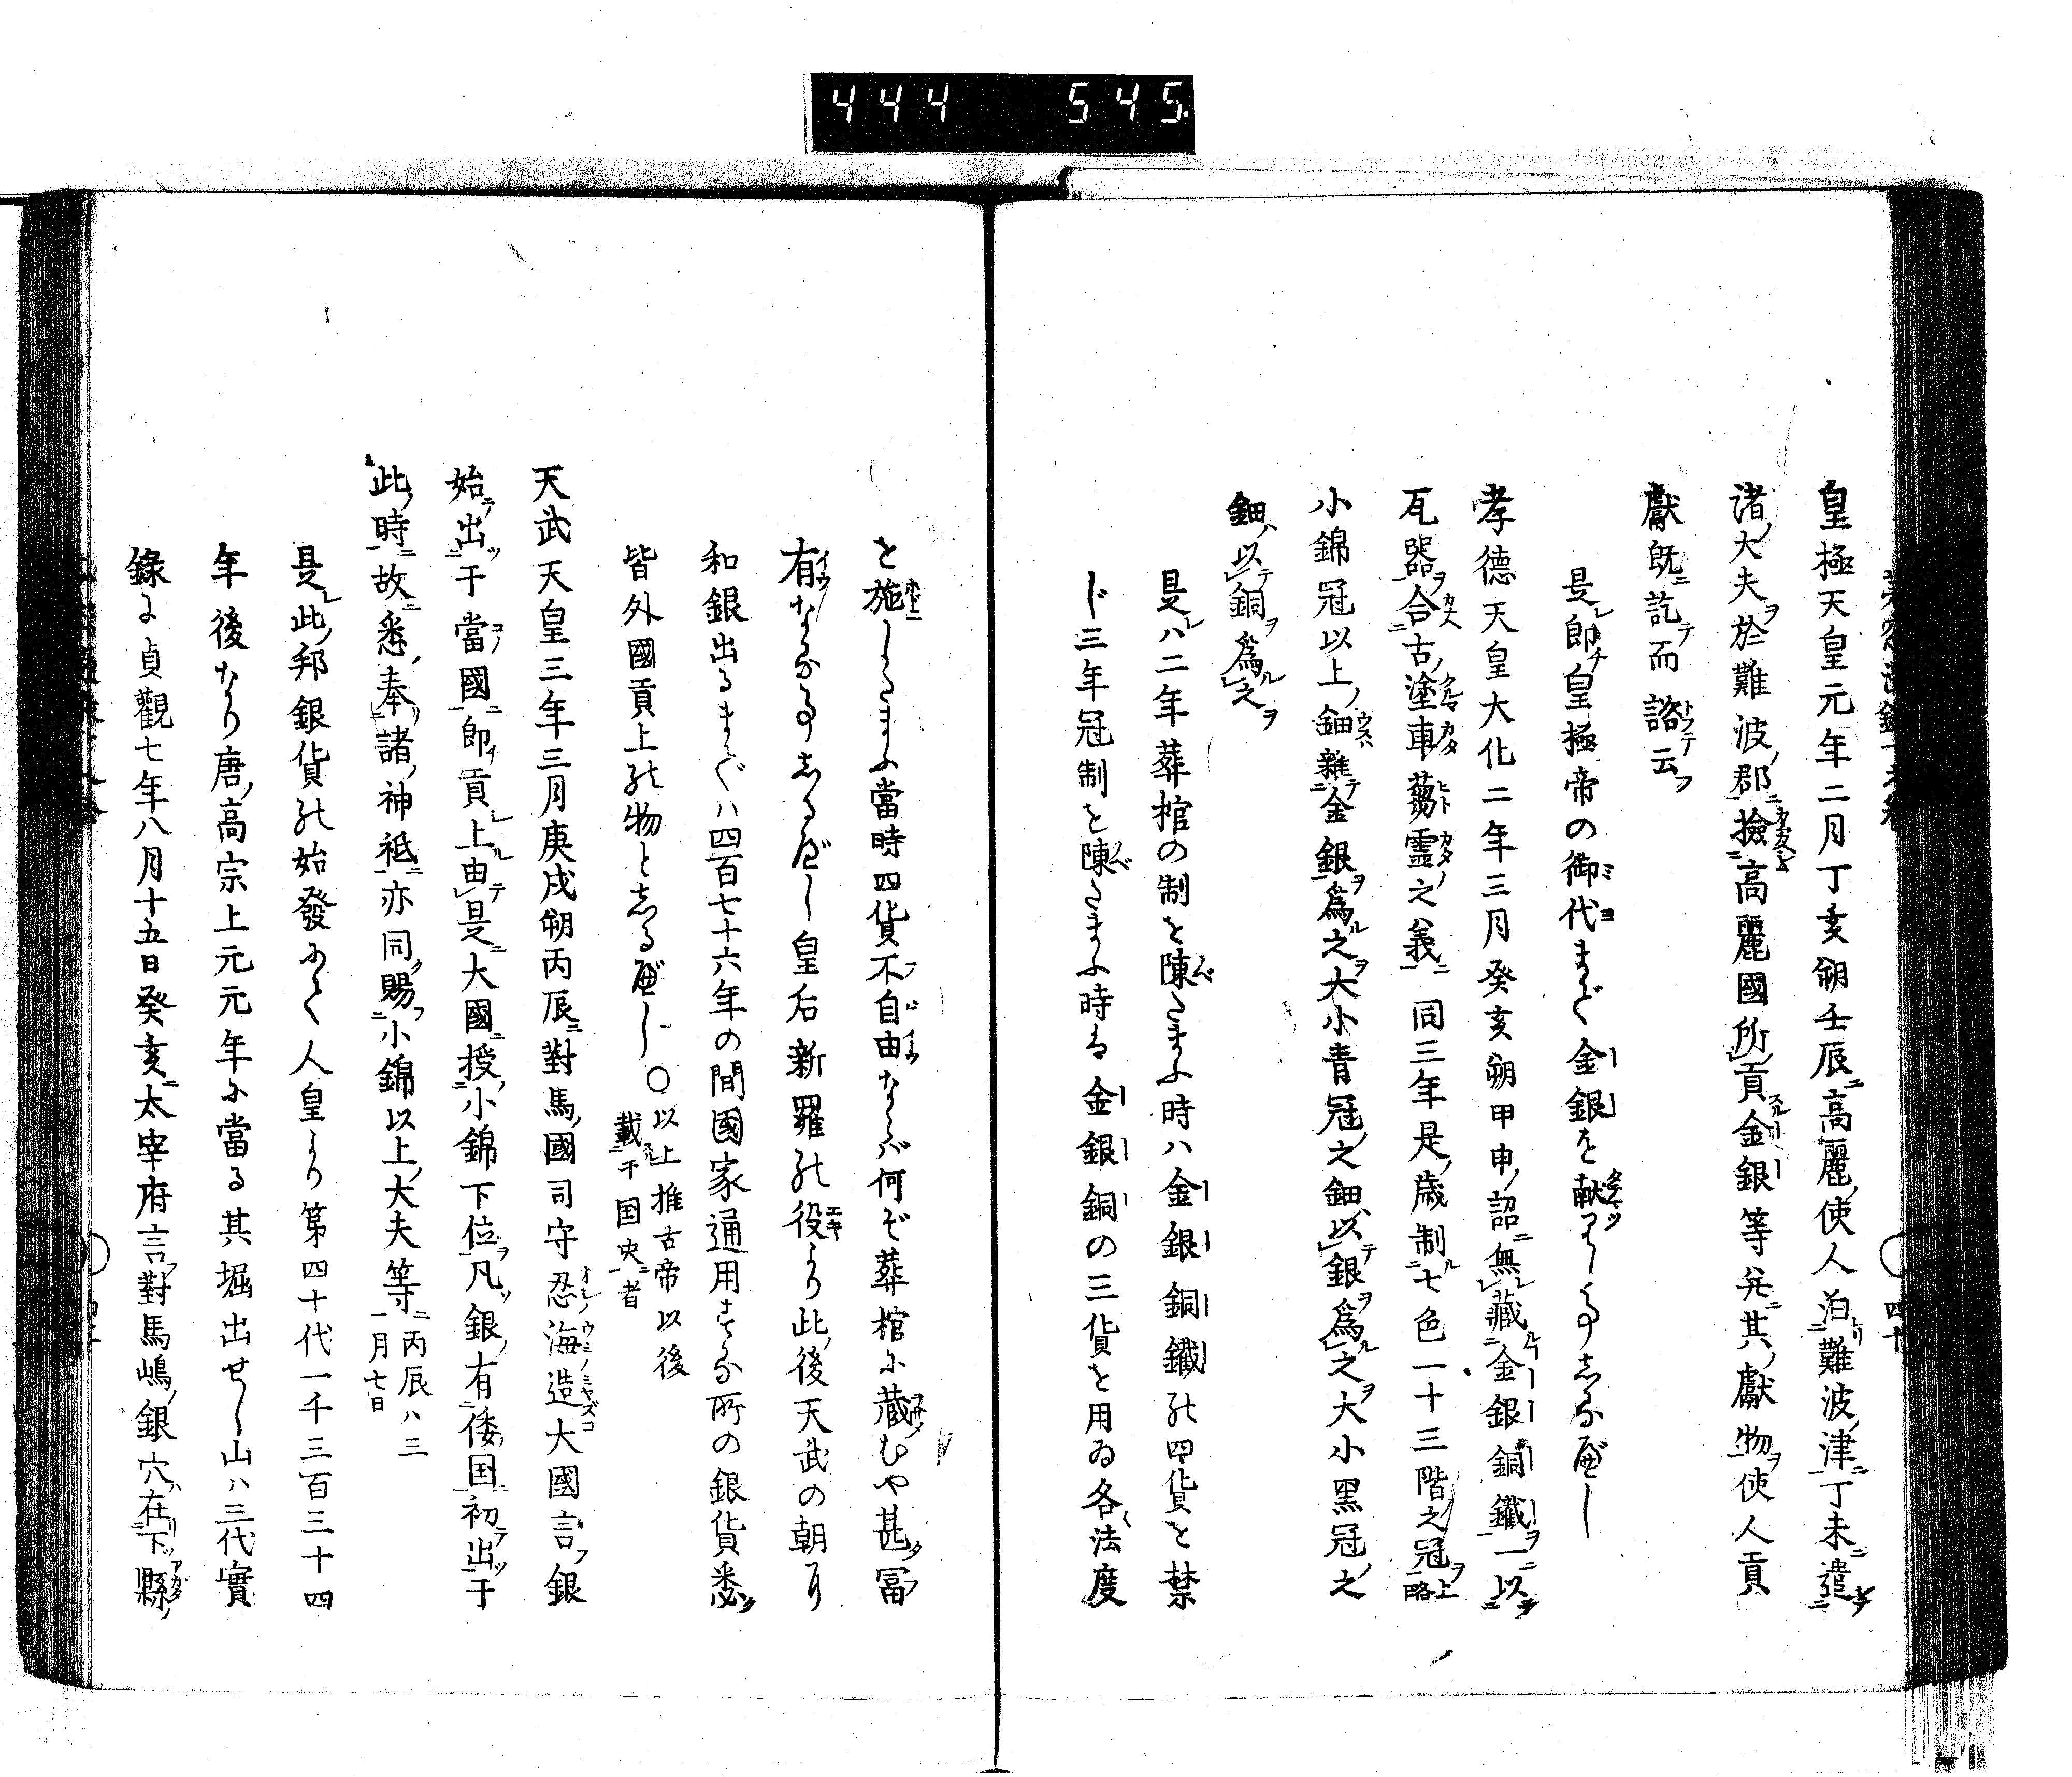 444 545
皇極天皇元年二月丁亥朔壬辰高麗使人泊難波津丁未遣
諸大夫於難波郡撿高麗國所貢金銀等并其獻物使人貢
獻既訖而諮云
是即皇極帝の御代まで金銀を献りし事志るべし
孝德天皇大化二年三月癸亥朔甲申詔無藏金銀銅鐵一以
瓦器合古塗車蒭霊之義同三年是歳制七色一十三階之冠上略
小錦冠以上鈿雜金銀爲之大小青冠之鈿以銀爲之大小黑冠之
鈿以銅爲之
是ハ二年葬棺の制を陳たまふ時ハ金銀銅鐵の四貨を禁
じ三年冠制を陳たまふ時は金銀銅の三貨を用ゐ各法度
を施したまふ當時四貨不自由ならバ何ぞ葬棺に蔵むや甚冨
有なる事志るべし皇后新羅の役より此後天武の朝
和銀出るまでハ四百七十六年の間國家通用する所の銀貨悉
皆外國貢上の物と志るべし〇以上推古帝以後
載于国史者
天武天皇三年三月庚戌朔丙辰對馬國司守忍海造大國言銀
始出于當國即貢上由是大國授小錦下位凡銀有倭国初出于
此時故悉奉諸神祗亦同賜小錦以上大夫等丙辰ハ三
月七日
是此邦銀貨の始發にて人皇より第四十代一千三百三十四
年後なり唐高宗上元元年に當る其堀出せし山ハ三代實
錄に貞觀七年八月十五日癸亥太宰府言對馬嶋銀穴在下縣